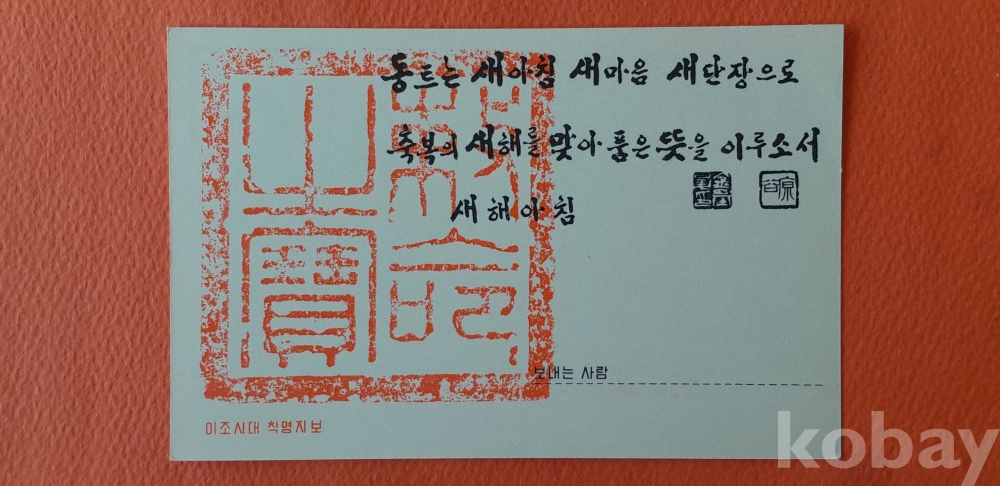 동트는 새아침 새마음 새단장으로
축복의 새해를 맞아 품은 뜻을 이루소서
새해아침
보내는 사람
이조시대 칙명지보
kobay